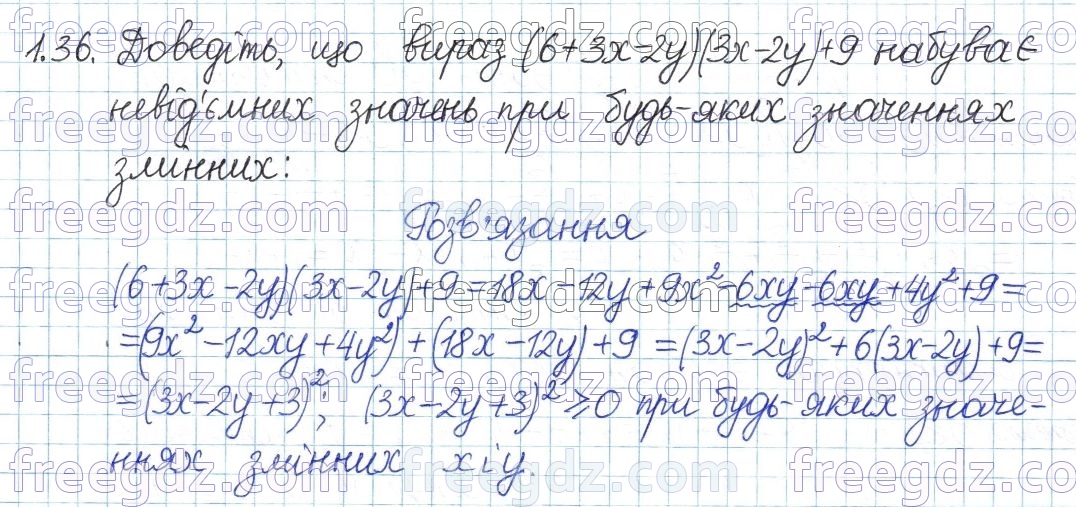 1.36. Доведіть, що вираз (6+3x-2y)(3x-2y)+9 набуває
невід'ємних значень при будь-яких значеннях
змінних:
Розв'язання
(6+3x-2y)(3x-2y)+9=18x-12y+9x²-6xy-6xy+4y²+9=
=(9x²-12xy+4y²)+(18x-12y)+9=(3x-2y)²+6(3x-2y)+9=
=(3x-2y+3)²; (3x-2y+3)²≥0 при будь-яких значе-
ннях змінних x і y.
freegdz.com